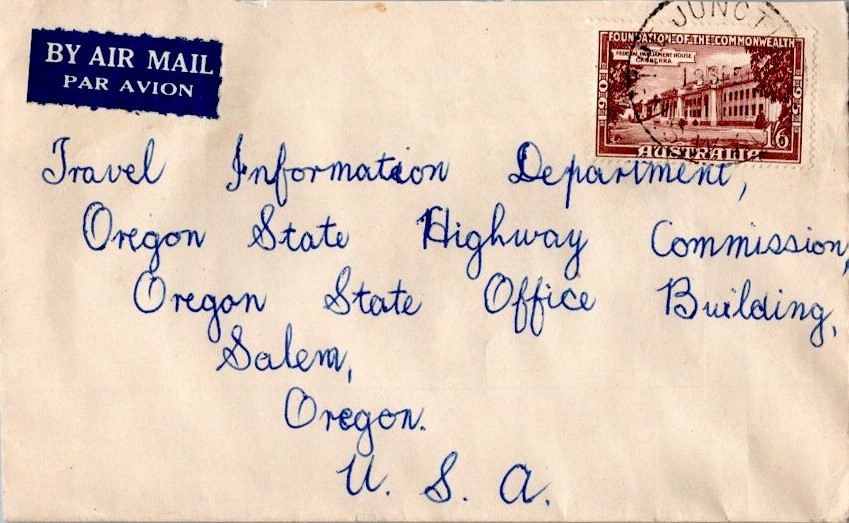 BY AIR MAIL
PAR AVION
JUNCT
FOUNDATION OF THE COMMONWEALTH
FEDERAL PARLIAMENT HOUSE
CANBERRA
1901
1951
1/6
AUSTRALIA
Travel Information Department,
Oregon State Highway Commission,
Oregon State Office Building,
Salem,
Oregon.
U. S. A.